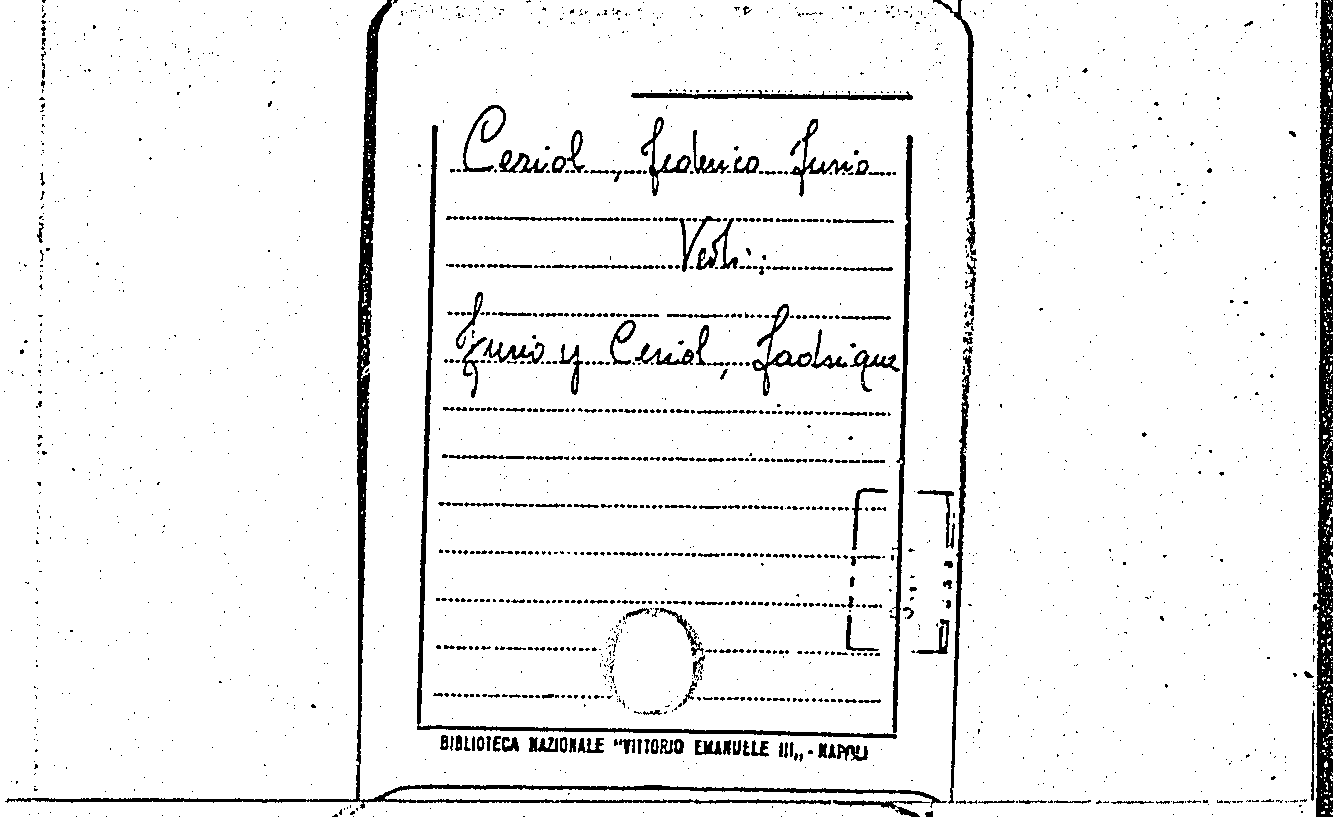 Ceriol, Federico Furio
Vedi:
Furio y Ceriol, Fadrique
BIBLIOTECA NAZIONALE "VITTORIO EMANUELE III„ - NAPOLI